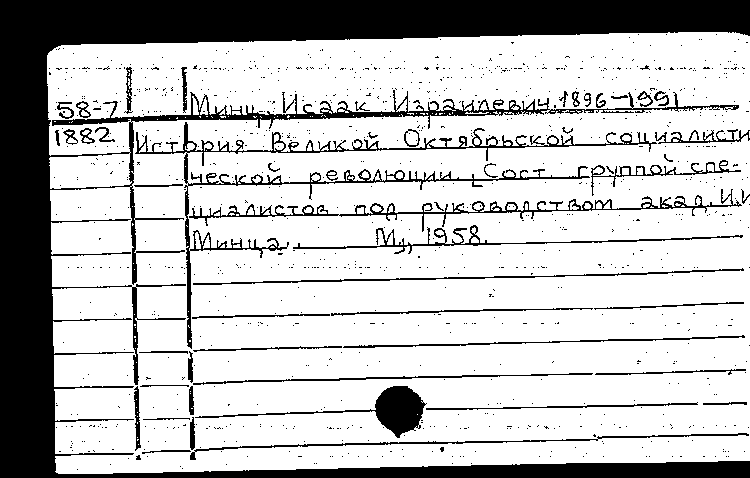 58-7 Минц, Исаак Израилевич. 1896-1991
1882 История Великой Октябрьской социалисти
ческой революции. [Сост. группой спе-
циалистов под руководством акад. И.И
Минца.. М., 1958.